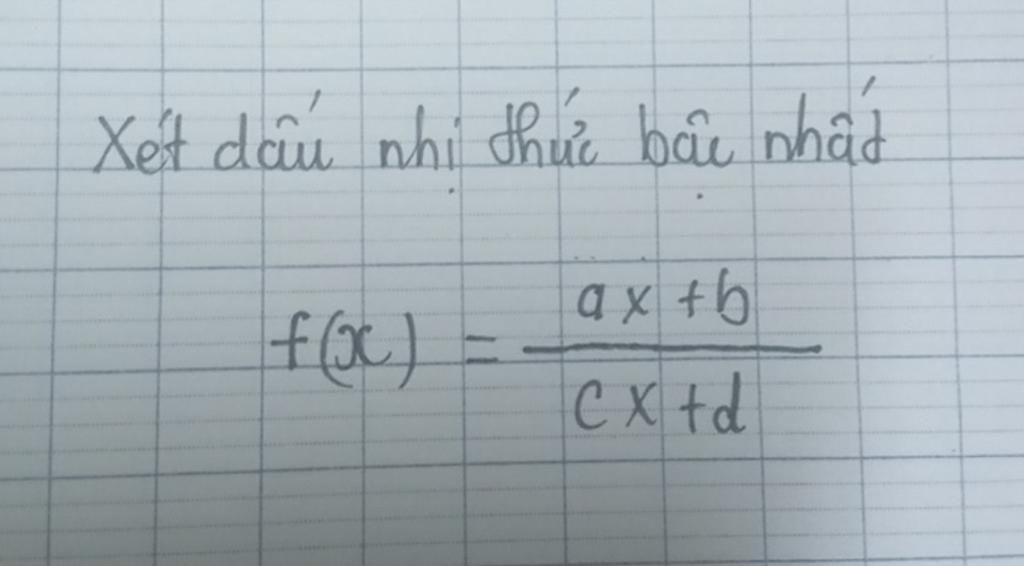 Xét dấu nhị thức bậc nhất
f(x) = \frac{ax+b}{cx+d}